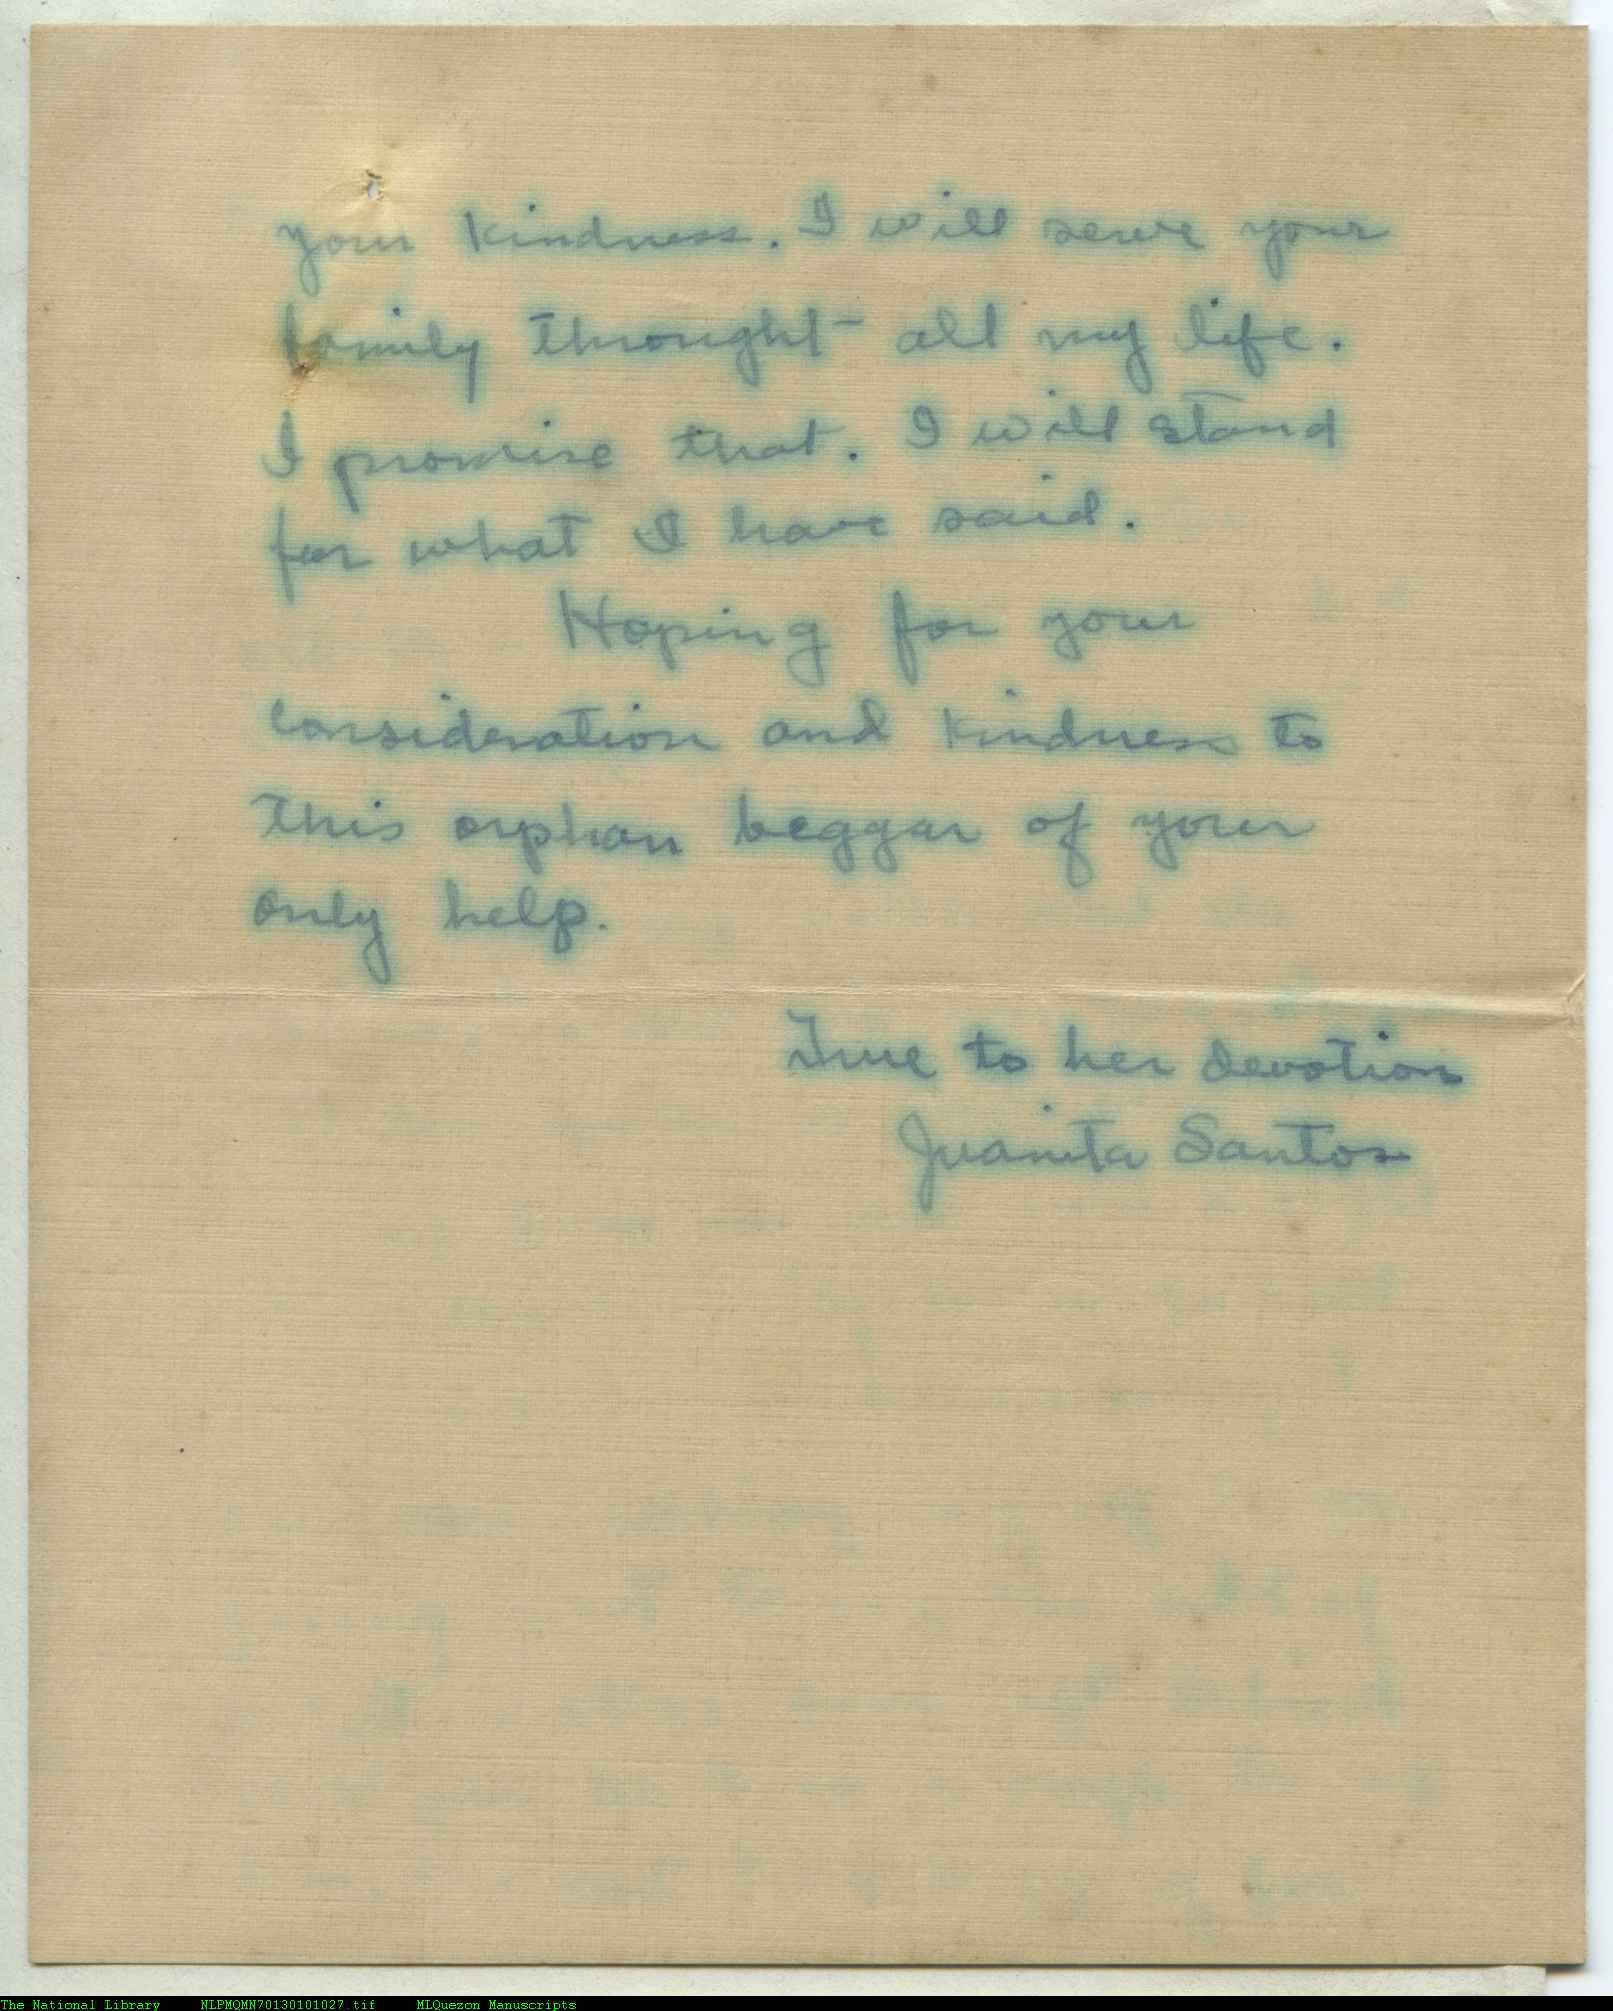 your kindness. I will serve your
family throught- all my life.
I promise that. I will stand
for what I have said.
Hoping for your
consideration and kindness to
this orphan beggar of your
only help.
True to her devotion
Juanita Santos
The National Library NLPMQMN70130101027.tif MLQuezon Manuscripts